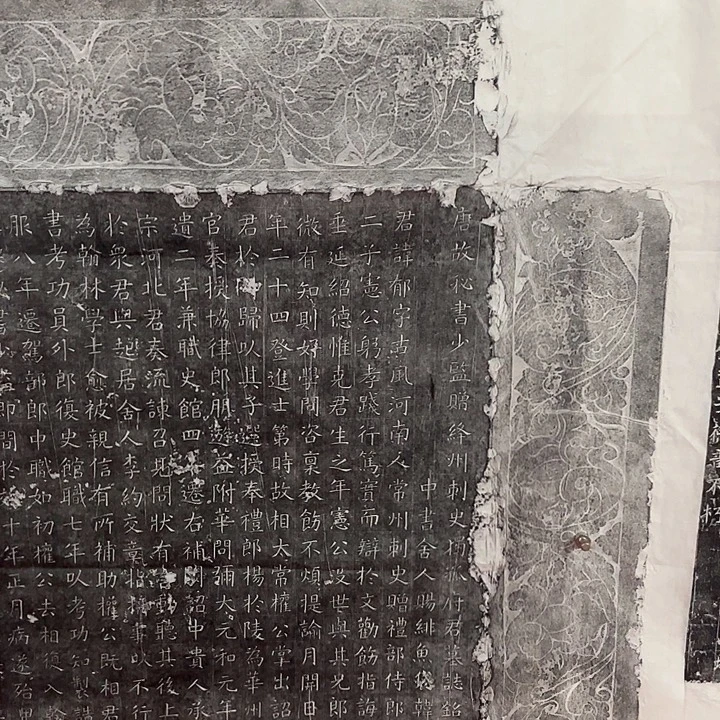 唐故秘書少監贈絳州刺史獨孤府君墓誌銘
中書舍人賜緋魚袋韓
君諱郁字古風河南人常州刺史贈禮部侍郎
二子憲公躬孝踐行篤實而辯於文勸飭指誨
垂延紹德惟克君生之年憲公沒世與其兄郎
微有知則好學問咨稟教飭不煩提諭月開日
年二十四登進士第時故相太常權公掌出詔
君於歸以其子選授奉禮郎楊於陵為華州
官奏授協律郎朋遊益附華問彌大元和元年
遺二年兼職史館四年遷右補闕詔中貴人承
宗河北君奏疏諫召見問狀有言動聽其後上
於衆君與起居舍人李約交章指摘事以不行
為翰林學士愈被親信有所補助權公既相君
書考功員外郎復史館職七年以考功知制誥
服八年遷駕部郎中職如初權公去相復入翰
秘書少監即閒於十年正月病遂殆甲